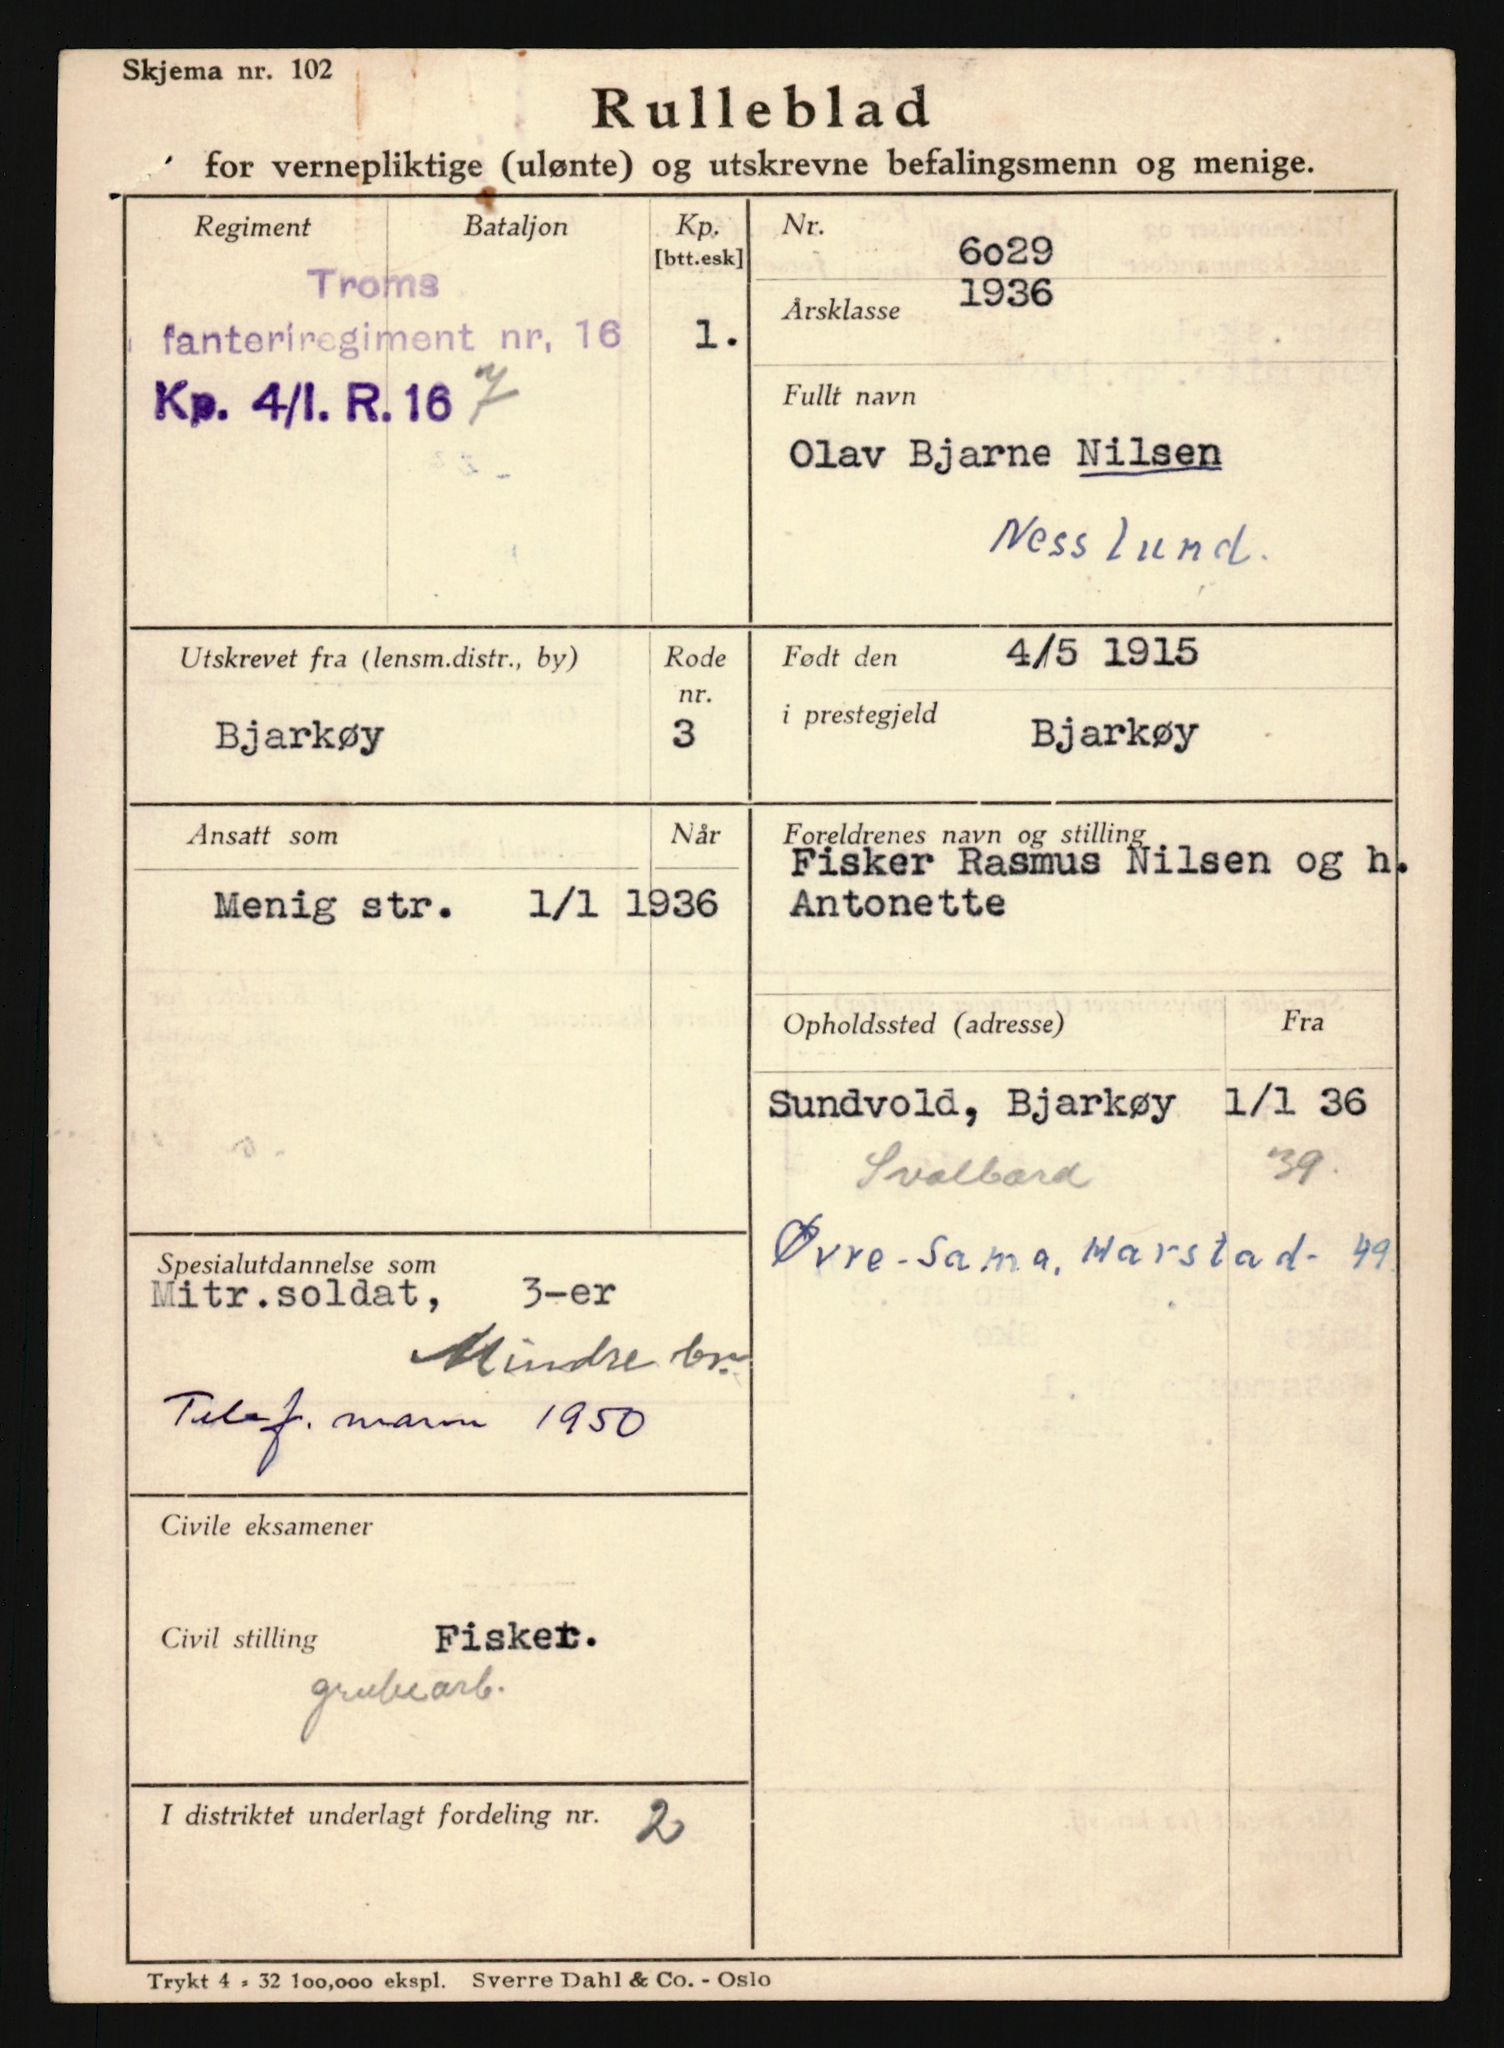 Skjema nr. 102
Rulleblad
for vernepliktige (ulønte) og utskrevne befalingsmenn og menige.
Regiment Bataljon Kp. [btt.esk]
Troms
fanteriregiment nr, 16 1.
Kp. 4/I. R. 16 7
Nr. 6029
Årsklasse 1936
Fullt navn
Olav Bjarne Nilsen
Ness Lund.
Utskrevet fra (lensm.distr., by) Rode nr.
Bjarkøy 3
Født den 4/5 1915
i prestegjeld Bjarkøy
Ansatt som Når
Menig str. 1/1 1936
Foreldrenes navn og stilling
Fisker Rasmus Nilsen og h.
Antonette
Opholdssted (adresse) Fra
Sundvold, Bjarkøy 1/1 36
Svalbard 39.
Øvre-Sama, Harstad- 49
Spesialutdannelse som
Mitr.soldat, 3-er
Mindre br.
Telef. mann 1950
Civile eksamener
Civil stilling Fisker.
grubearb.
I distriktet underlagt fordeling nr. 2
Trykt 4 - 32 100,000 ekspl. Sverre Dahl & Co. - Oslo